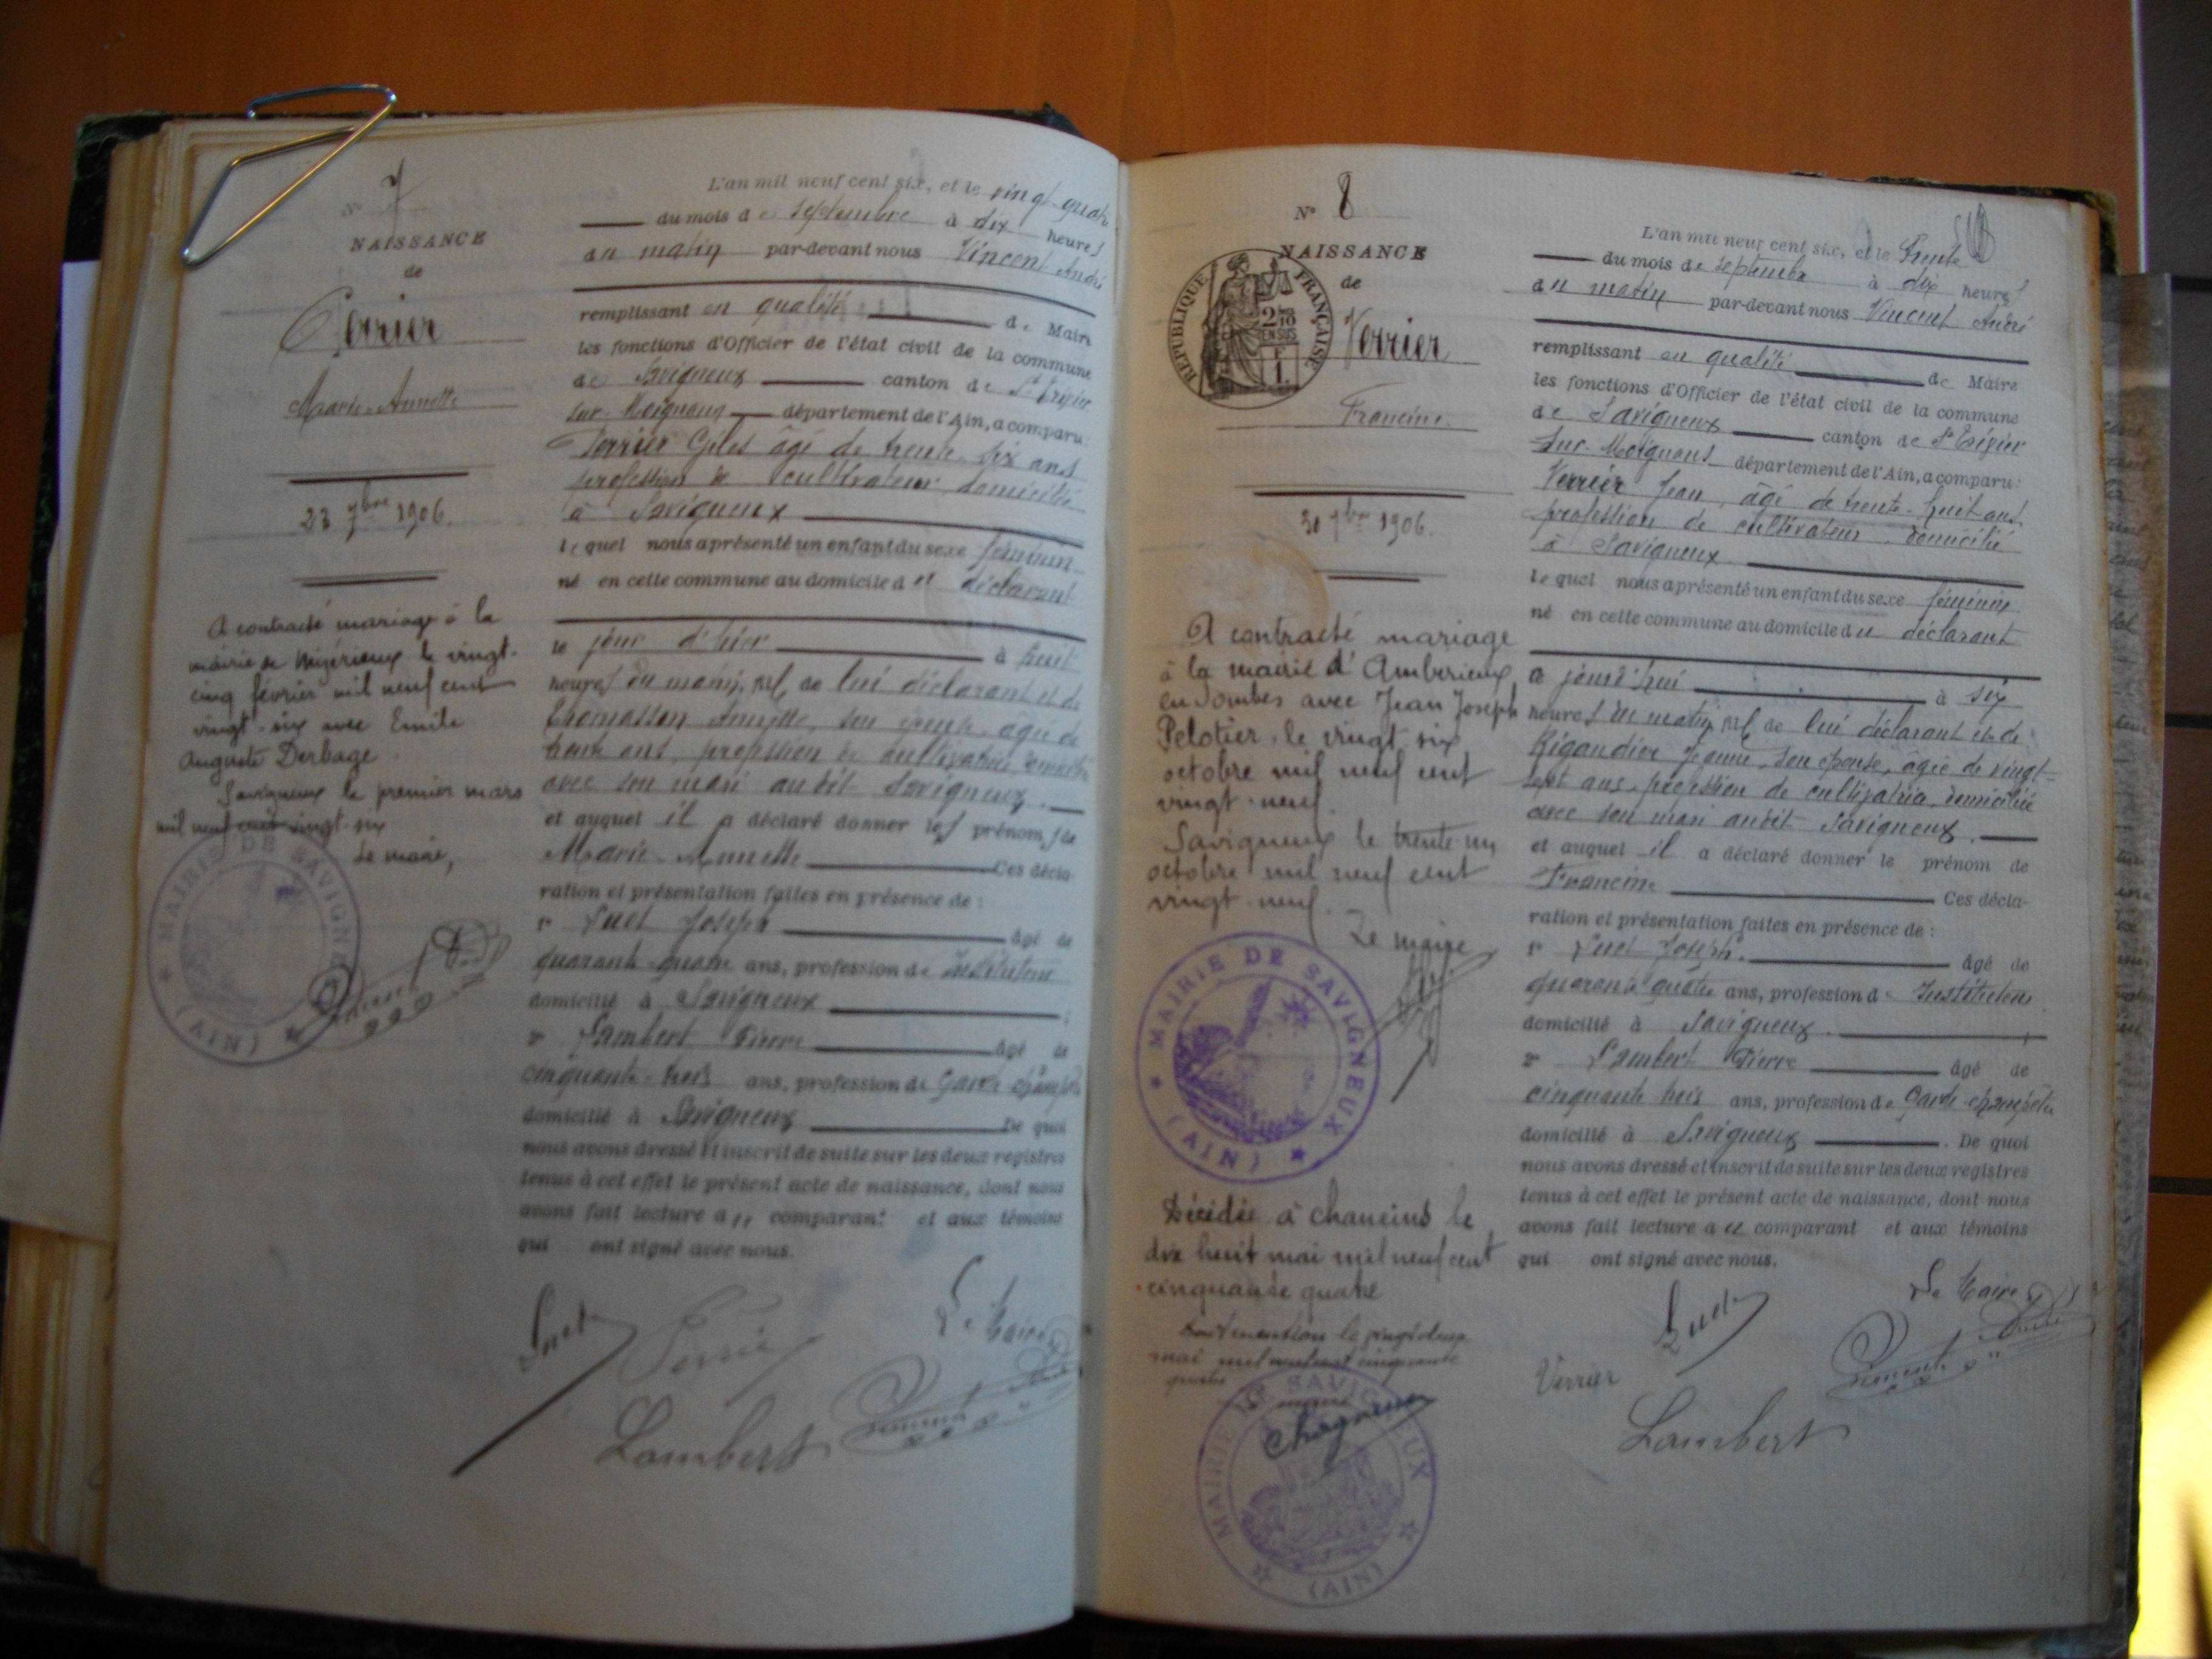 N° 7
NAISSANCE
de
Perrier
Marie-Annette
23 7bre 1906.
A contracté mariage à la
mairie de Mizérieux le vingt-
cinq février mil neuf cent
vingt-six avec Emile
Auguste Derbage.
Savigneux le premier mars
mil neuf cent vingt-six
Le maire,
MAIRIE DE SAVIGNEUX (AIN)
L'an mil neuf cent six, et le vingt-quatre
du mois de septembre à dix heures
du matin par-devant nous Vincent André
remplissant en qualité de Maire
les fonctions d'Officier de l'état civil de la commune
de Savigneux canton de St Trivier
sur-Moignans département de l'Ain, a comparu:
Perrier âgé de trente-six ans
profession de cultivateur domicilié
à Savigneux
lequel nous a présenté un enfant du sexe féminin
né en cette commune au domicile du déclarant
le jour d'hier à huit
heures du matin, né de lui déclarant et de
Thomasson Annette, son épouse, âgée de
trente ans, profession de cultivatrice, domiciliée
avec son mari audit Savigneux.
et auquel il a déclaré donner les prénoms de
Marie-Annette Ces décla-
ration et présentation faites en présence de:
1° Suet Joseph âgé de
quarante-quatre ans, profession de Instituteur
domicilié à Savigneux;
2° Lambert Pierre âgé de
cinquante-trois ans, profession de Garde champêtre
domicilié à Savigneux De quoi
nous avons dressé et inscrit de suite sur les deux registres
tenus à cet effet le présent acte de naissance, dont nous
avons fait lecture au comparant et aux témoins
qui ont signé avec nous.
Le Maire
Suet Perrier
Lambert Vincent André
N° 8
NAISSANCE
de
RÉPUBLIQUE FRANÇAISE
2/10 EN SUS
1 F
Verrier
Francine
30 7bre 1906.
A contracté mariage
à la mairie d'Ambérieux
en Dombes avec Jean Joseph
Pelotier, le vingt six
octobre mil neuf cent
vingt-neuf.
Savigneux le trente un
octobre mil neuf cent
vingt-neuf.
Le maire
MAIRIE DE SAVIGNEUX (AIN)
Décédée à Chaneins le
dix huit mai mil neuf cent
cinquante quatre
mai mil neuf cent cinquante
quatre
MAIRIE DE SAVIGNEUX (AIN)
L'an mil neuf cent six, et le trente
du mois de septembre à dix heures
du matin par-devant nous Vincent André
remplissant en qualité de Maire
les fonctions d'Officier de l'état civil de la commune
de Savigneux canton de St Trivier
sur-Moignans département de l'Ain, a comparu:
Verrier Jean, âgé de trente-huit ans,
profession de cultivateur domicilié
à Savigneux
lequel nous a présenté un enfant du sexe féminin
né en cette commune au domicile du déclarant
aujourd'hui à six
heures du matin, né de lui déclarant et de
Rigaudier Jeanne, son épouse, âgée de vingt-
sept ans, profession de cultivatrice, domiciliée
avec son mari audit Savigneux.
et auquel il a déclaré donner le prénom de
Francine Ces décla-
ration et présentation faites en présence de:
1° Suet Joseph. âgé de
quarante quatre ans, profession de Instituteur
domicilié à Savigneux.
2° Lambert Pierre âgé de
cinquante trois ans, profession de Garde-champêtre
domicilié à Savigneux. De quoi
nous avons dressé et inscrit de suite sur les deux registres
tenus à cet effet le présent acte de naissance, dont nous
avons fait lecture au comparant et aux témoins
qui ont signé avec nous.
Le Maire
Suet
Verrier Vincent André
Lambert